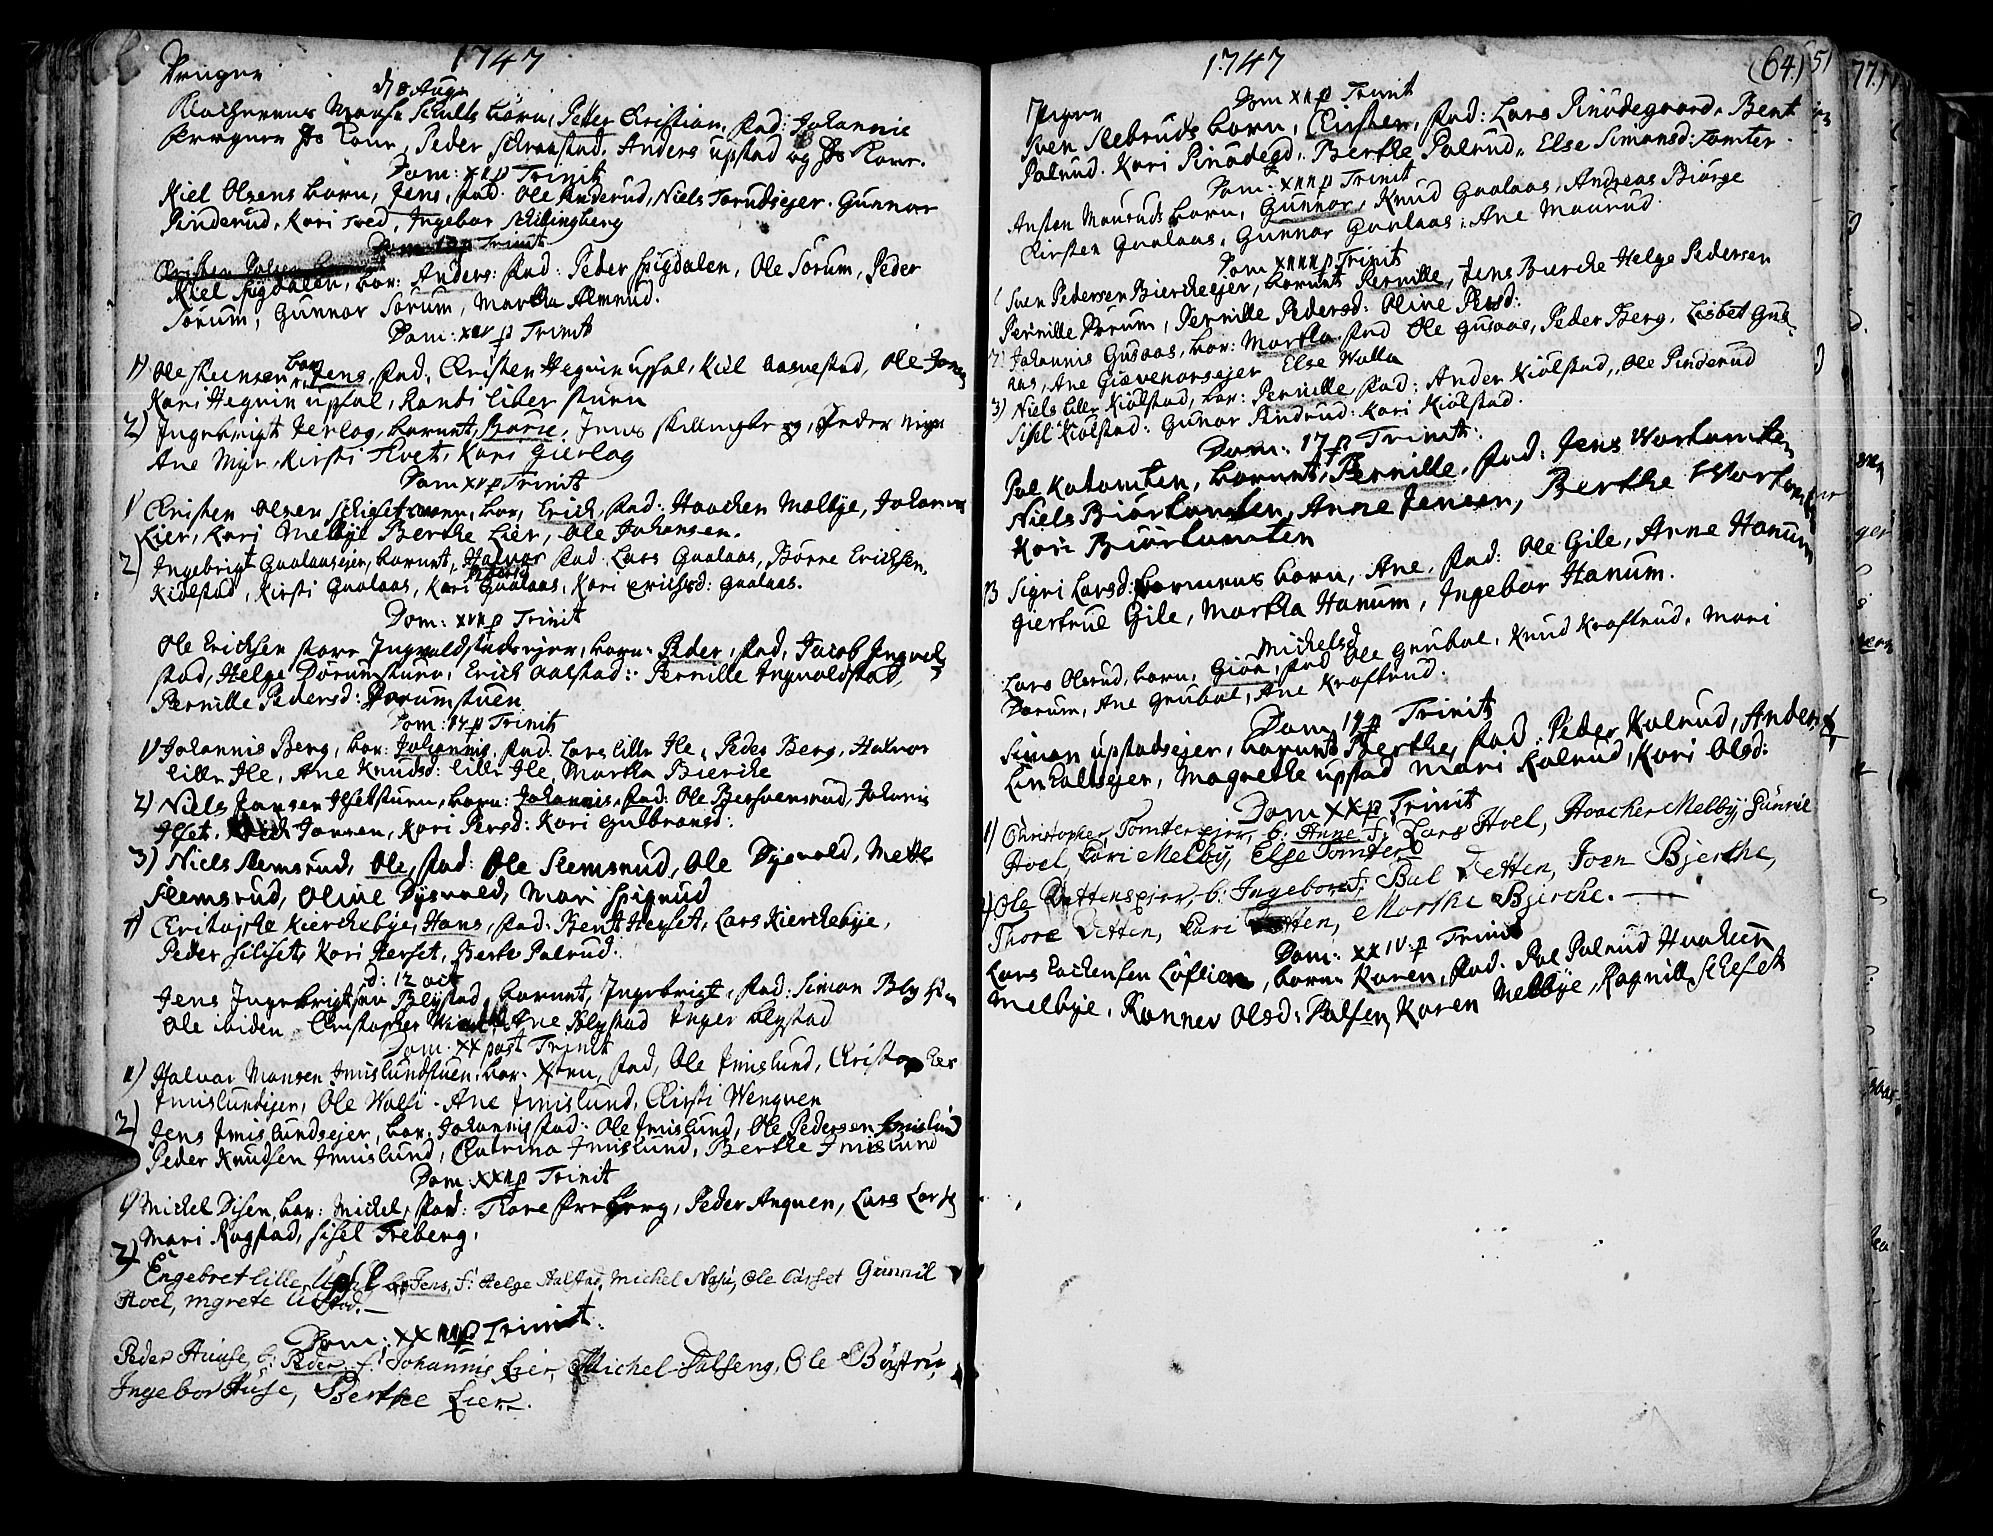 Drenger
1747
d 8 Aug
Klocherens Mons Schults born, Peder Christian, fad: Johannis
og Hs Kone, Peder Schraastad. Anders upstad og Hs Kone.
Dom: XII p Trinit
Kiel Olsens born, Jens, fad: Ole Anderud, Niels Torudsejer. Gunnor
Pinderud, Kari tved, Ingebor Schillingberg
Dom 13 p Trinit
Kiel Spigdalen, bor: Anders: fad: Peder Spigdalen, Ole Sorum, Peder
Sorum, Gunnor Sorum, Martha Almrud.
Dom: XIV p Trinit
1) Ole Steensen bor: Jens, fad. Christen Hegvin upsal, Kiel Aasnestad, Ole Jensen
Kari Hegvin upsal, Randi liberstuen
2) Ingebrigt Jerlog, barnet, Borre, Jens skillingberg, Peder Myr
Ane Myr, Kirsti Tvet, Kari Gierlog
Dom XV p Trinit
1) Christen Olsen, bor, Erich, fad: Haachen Melbye, Johannes
Lier, Kari Melbye Berthe Lier, Ole Johansen.
2) Ingebrigt Gaalaasejer, barnet, Halvor fad: Lars Gaalaas, Börre Erichsen
Kiölstad, Kirsti Gaalaas, Kari Gaalaas, Kari Erichsd: Gaalaas.
Dom: XVI p Trinit
Ole Erichsen store Ingvaldstadsejer, born: Peder, fad, Jacob Ingvald
stad, Helge Dorumstuen, Erich Aalstad: Pernille Ingvaldstad,
Pernille Pedersd: Dorumstuen
Dom: 17 p Trinit
1) Johannis Berg, bor: Johannis, fad: Lars lille Ile, Peder Berg, Halvor
lille Ile, Ane Knudsd: lille Ile, Martha Bierche
2) Niels Jansen Ilsetstuen, born: Johannis, fad: Ole Bersvensrud, Johannis
Ilset. Jonsen, Kari Persd: Kari Gulbransd:
3) Niels Stemsrud, Ole, fad: Ole Stemsrud, Ole Dysvold, Mette
Stemsrud, Oline Dysvold, Mari Spigrud
4) Kierchebye, Hans, fad: Bent Herset, Lars Kierchebye,
Peder siliset, Kari Herset, Berte Palrud:
d: 12 oct
Jens Ingebrigtsen Blystad, barnet, Ingebrigt, fad: Simon Blystad
Ole ibiden Christopher Ane Blystad Inger Blystad
Dom XX post Trinit
1) Halvor Monsen Imislundstuen, bor: Xten, fad, Ole Imislund, Christopher
Imislundejer, Ole Wolsi. Ane Imislund, Chirsti Wengven
2) Jens Imislundsejer, bor: Johannis fad: Ole Imislund, Ole Pedersen Imislund
Peder Knudsen Imislund, Catrina Imislund, Berthe Imislund
Dom XXII p Trinit
1) Michel Disen, bor: Michel, fad: Tore Preberg, Peder Anquen, Lars Lars
Mari Rogstad, Sisel Treberg.
2) Engebret lille Upsal b: Jens, f: Helge Aalstad, Michel Ole Aasset Gunnil
Hoel, mgrete
Dom: XXIII p Trinit:
Peder Huuse, b: Peder, f: Johannis Lier, Michel Palseng, Ole Böystru,
Ingebor Huse, Berthe Lier.
1747
(64.) 51
Piger
Dom XII p Trinit
Sven Stebruds born, Kirsten, fad: Lars Pinödegaard, Bent
Palrud. Kari Pinödegd. Berthe Palrud, Else Simonsd: tomter.
Dom: XIII p Trinit
Ansten Maurudsborn, Gunnor, Knud Gaalaas, Andreas Biörge
Kirsten Gaalaas, Gunnor Gaalaas, Ane Maurud.
Dom XIIII p Trinit
1 Sven Pedersen Biercheejer, barnet Pernille, Jens Bierche Helge Pedersen
Pernille Dorum, Pernille Pedersd: Oline Persd:
2) Johannis Gusaas, bor: Martha fad Ole Gusaas, Peder Berg, Lisbet Gus-
aas, Ane Giævenorsejer Else Walla
3) Niels lille Kiölstad, bor: Pernille, fad: Ander Kiölstad, Ole Pinderud
Sisil Kiölstad: Gunor Pindrud: Kari Kiölstad.
Dom: 17 p Trinit:
Pal Katomten, barnet, Pernille, fad: Jens Wortomten
Niels Biörtomten, Anne Jensen, Berthe Wortomten
Kari Biörtomten
Sigri Larsd: born, Ane, fad: Ole Gile, Anne Hanum
Giertrue Gile, Martha Hanum, Ingebor Hanum.
Michelsd
Lars Olsrud, born, Giöa, fad Ole Grubal, Knud Kraftrud, Mari
Dorum, Ane Grubal, Ane Kraftrud.
Dom 19 p Trinit
Simon upstadsejer, barnet Berthe, fad: Peder Kalrud, Anders
Linholtsejer, Magrethe upstad Mari Kalrud, Kari Olsd:
Dom XX p Trinit
1) Christopher, Tomterejer, b: Anne f: Lars Hoel, Haacher Melby, Gunnil
Hoel, Kari Melby, Else Tomter
2) Ole Dettensejer, b: Ingebor f: Pal Detten, Joen Bjerche,
Thore Detten, Kari Detten, Morthe Bjerche. —
Dom: XXIV p Trinit
Lars Löflien, born Karen, fad. Pal Palrud Haachen
Melbye, Ranner Olsd: Palsen, Karen Melbye, Ragnill Schefet